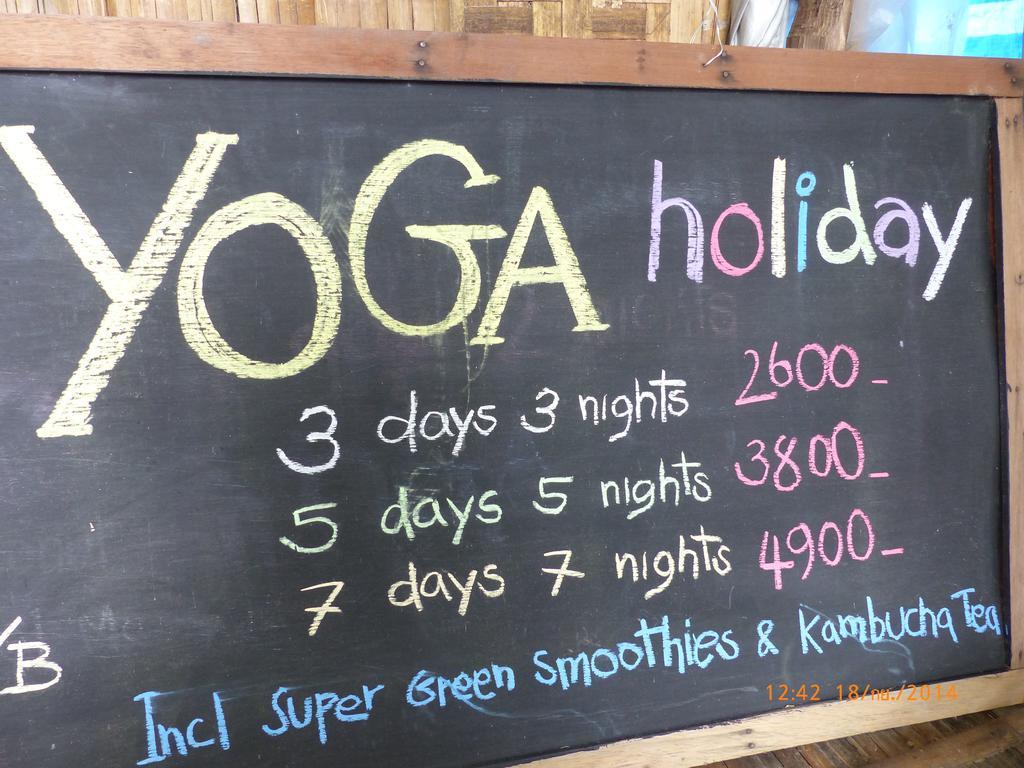 YOGA holiday
3 days 3 nights 2600-
5 days 5 nights 3800-
7 days 7 nights 4900-
/B
Incl Super Green Smoothies & Kambucha Tea
12:42 18/กย./2014